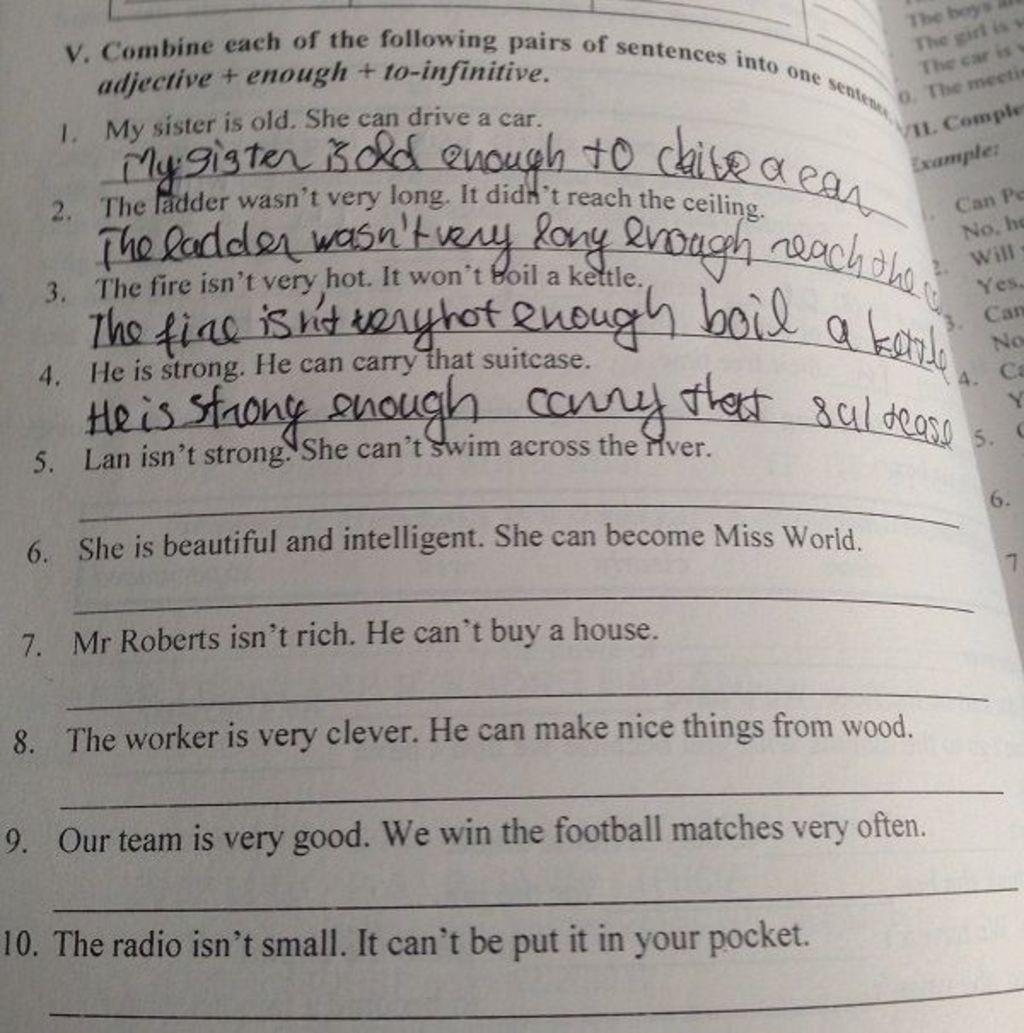 V. Combine each of the following pairs of sentences into one sentence,
adjective + enough + to-infinitive.
1. My sister is old. She can drive a car.
My sister is old enough to drive a car
2. The ladder wasn't very long. It didn't reach the ceiling.
The ladder wasn't very long enough reach the
3. The fire isn't very hot. It won't boil a kettle.
The fire isn't very hot enough boil a kettle
4. He is strong. He can carry that suitcase.
He is strong enough carry that
5. Lan isn't strong. She can't swim across the river.
6. She is beautiful and intelligent. She can become Miss World.
7. Mr Roberts isn't rich. He can't buy a house.
8. The worker is very clever. He can make nice things from wood.
9. Our team is very good. We win the football matches very often.
10. The radio isn't small. It can't be put it in your pocket.
The boys
The girl is
The car is
0. The
VII.
Example:
Can
No,
2. Will
Yes,
3. Can
No
4.
5.
6.
7